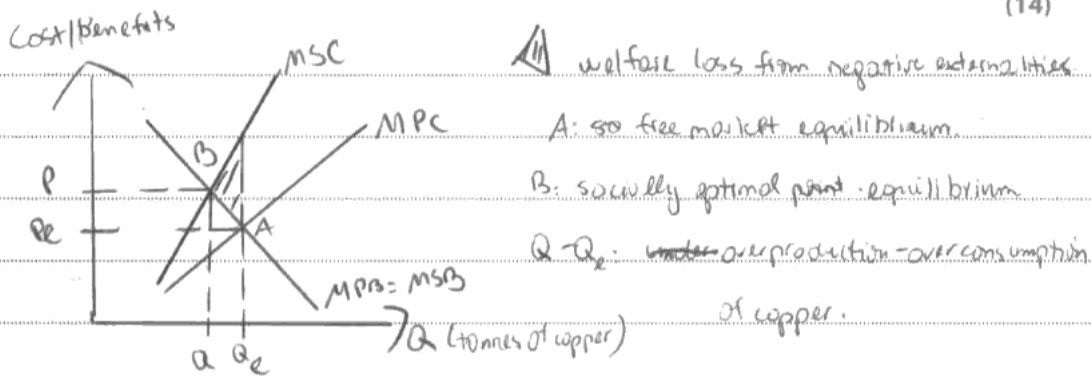 (14)
Cost/Benefits
MSC
MPC
B
P
Pe
A
MPB = MSB
Q Qe
Q (tonnes of copper)
welfare loss from negative externalities.
A: free market equilibrium.
B: socially optimal equilibrium
Q-Qe: overproduction-overconsumption
of copper.